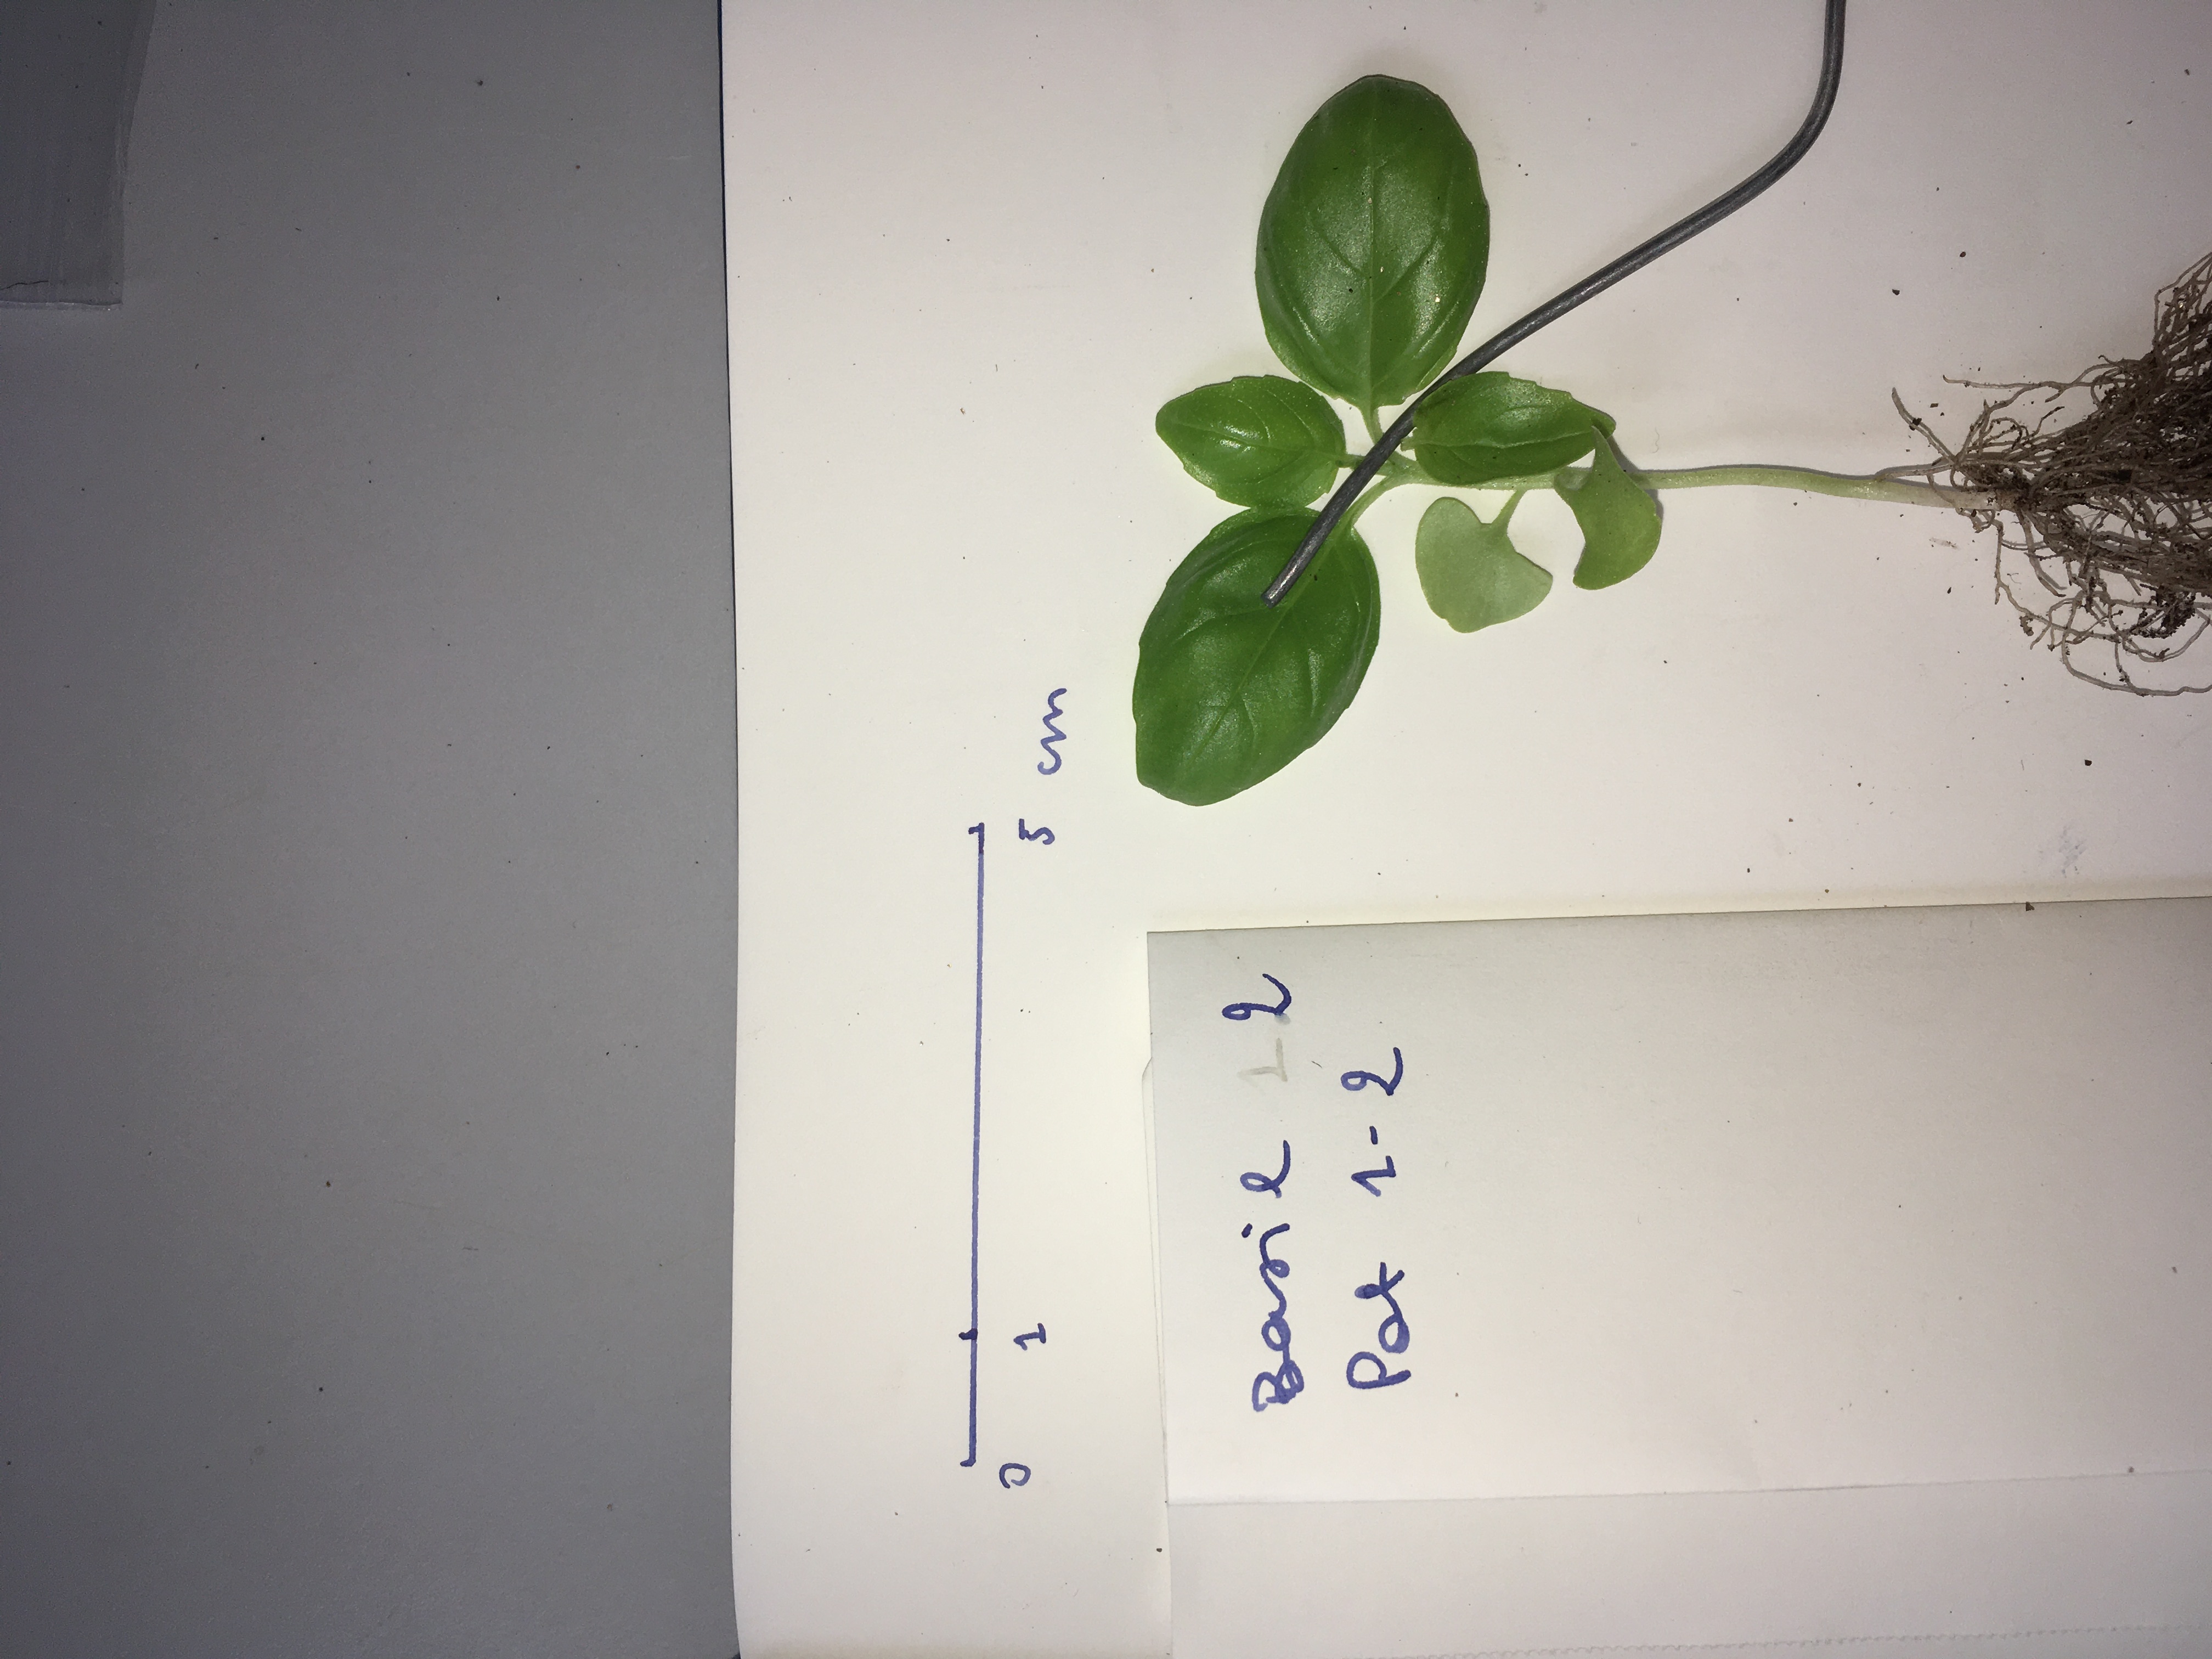 0 1 5 cm
Basil 2
Pot 1-2